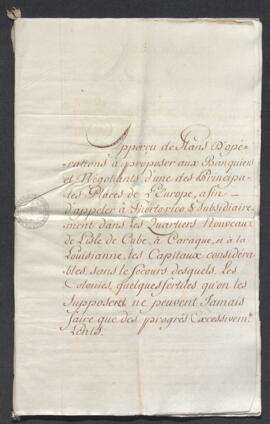 Apperçu de Plans D'opé-
rations à proposer aux Banquiers
et Négotiants d'une des Principa-
les Places de L'Europe, afin
d'appeler à Portorico & Subsidiaire-
ment dans les Quartiers Nouveaux
de L'isle de Cube, à Caraque, et à la
Louisianne, les Capitaux considéra-
bles, sans le Secours desquels, les
Colonies, quelques fertiles qu'on les
Supposent ne peuvent Jamais
faire que des progrès Excessivemt.
Lents.